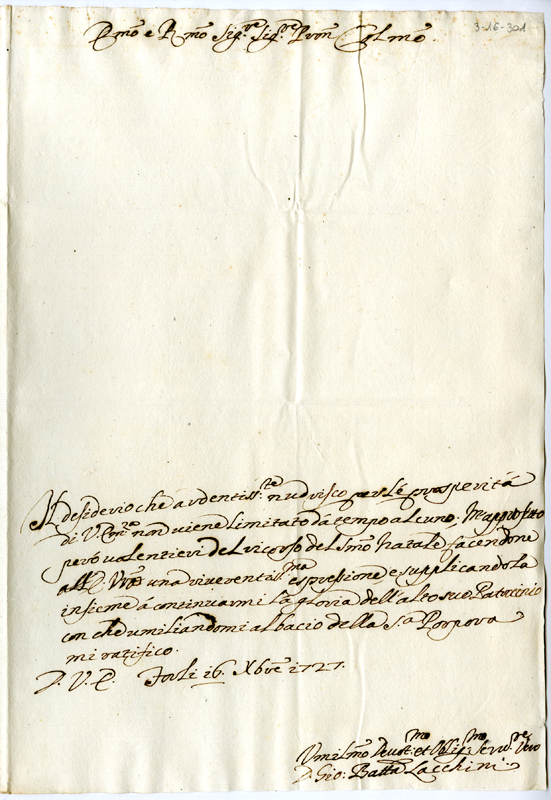 3-16-301
Emo e Rmo Sigre Sigre Pron Colmo
Il desiderio che ardentisste nudrisco per le prosperità
di V. Emza non viene limitato dà tempo alcuno; M'approfitto
però valentieri del ricorso del Smo Natale facendone
all'E. Vra una riverentissma espressione e supplicandola
insieme à continuarmi la gloria dell'alto suo Patrocinio
con che umiliandomi al bacio della Sa Porpora
mi ratifico.
D. V. E. Forlì 16. Xbre 1727.
Umilmo Devotmo et Obligmo Servre Vero
D. Gio: Batta Lacchini